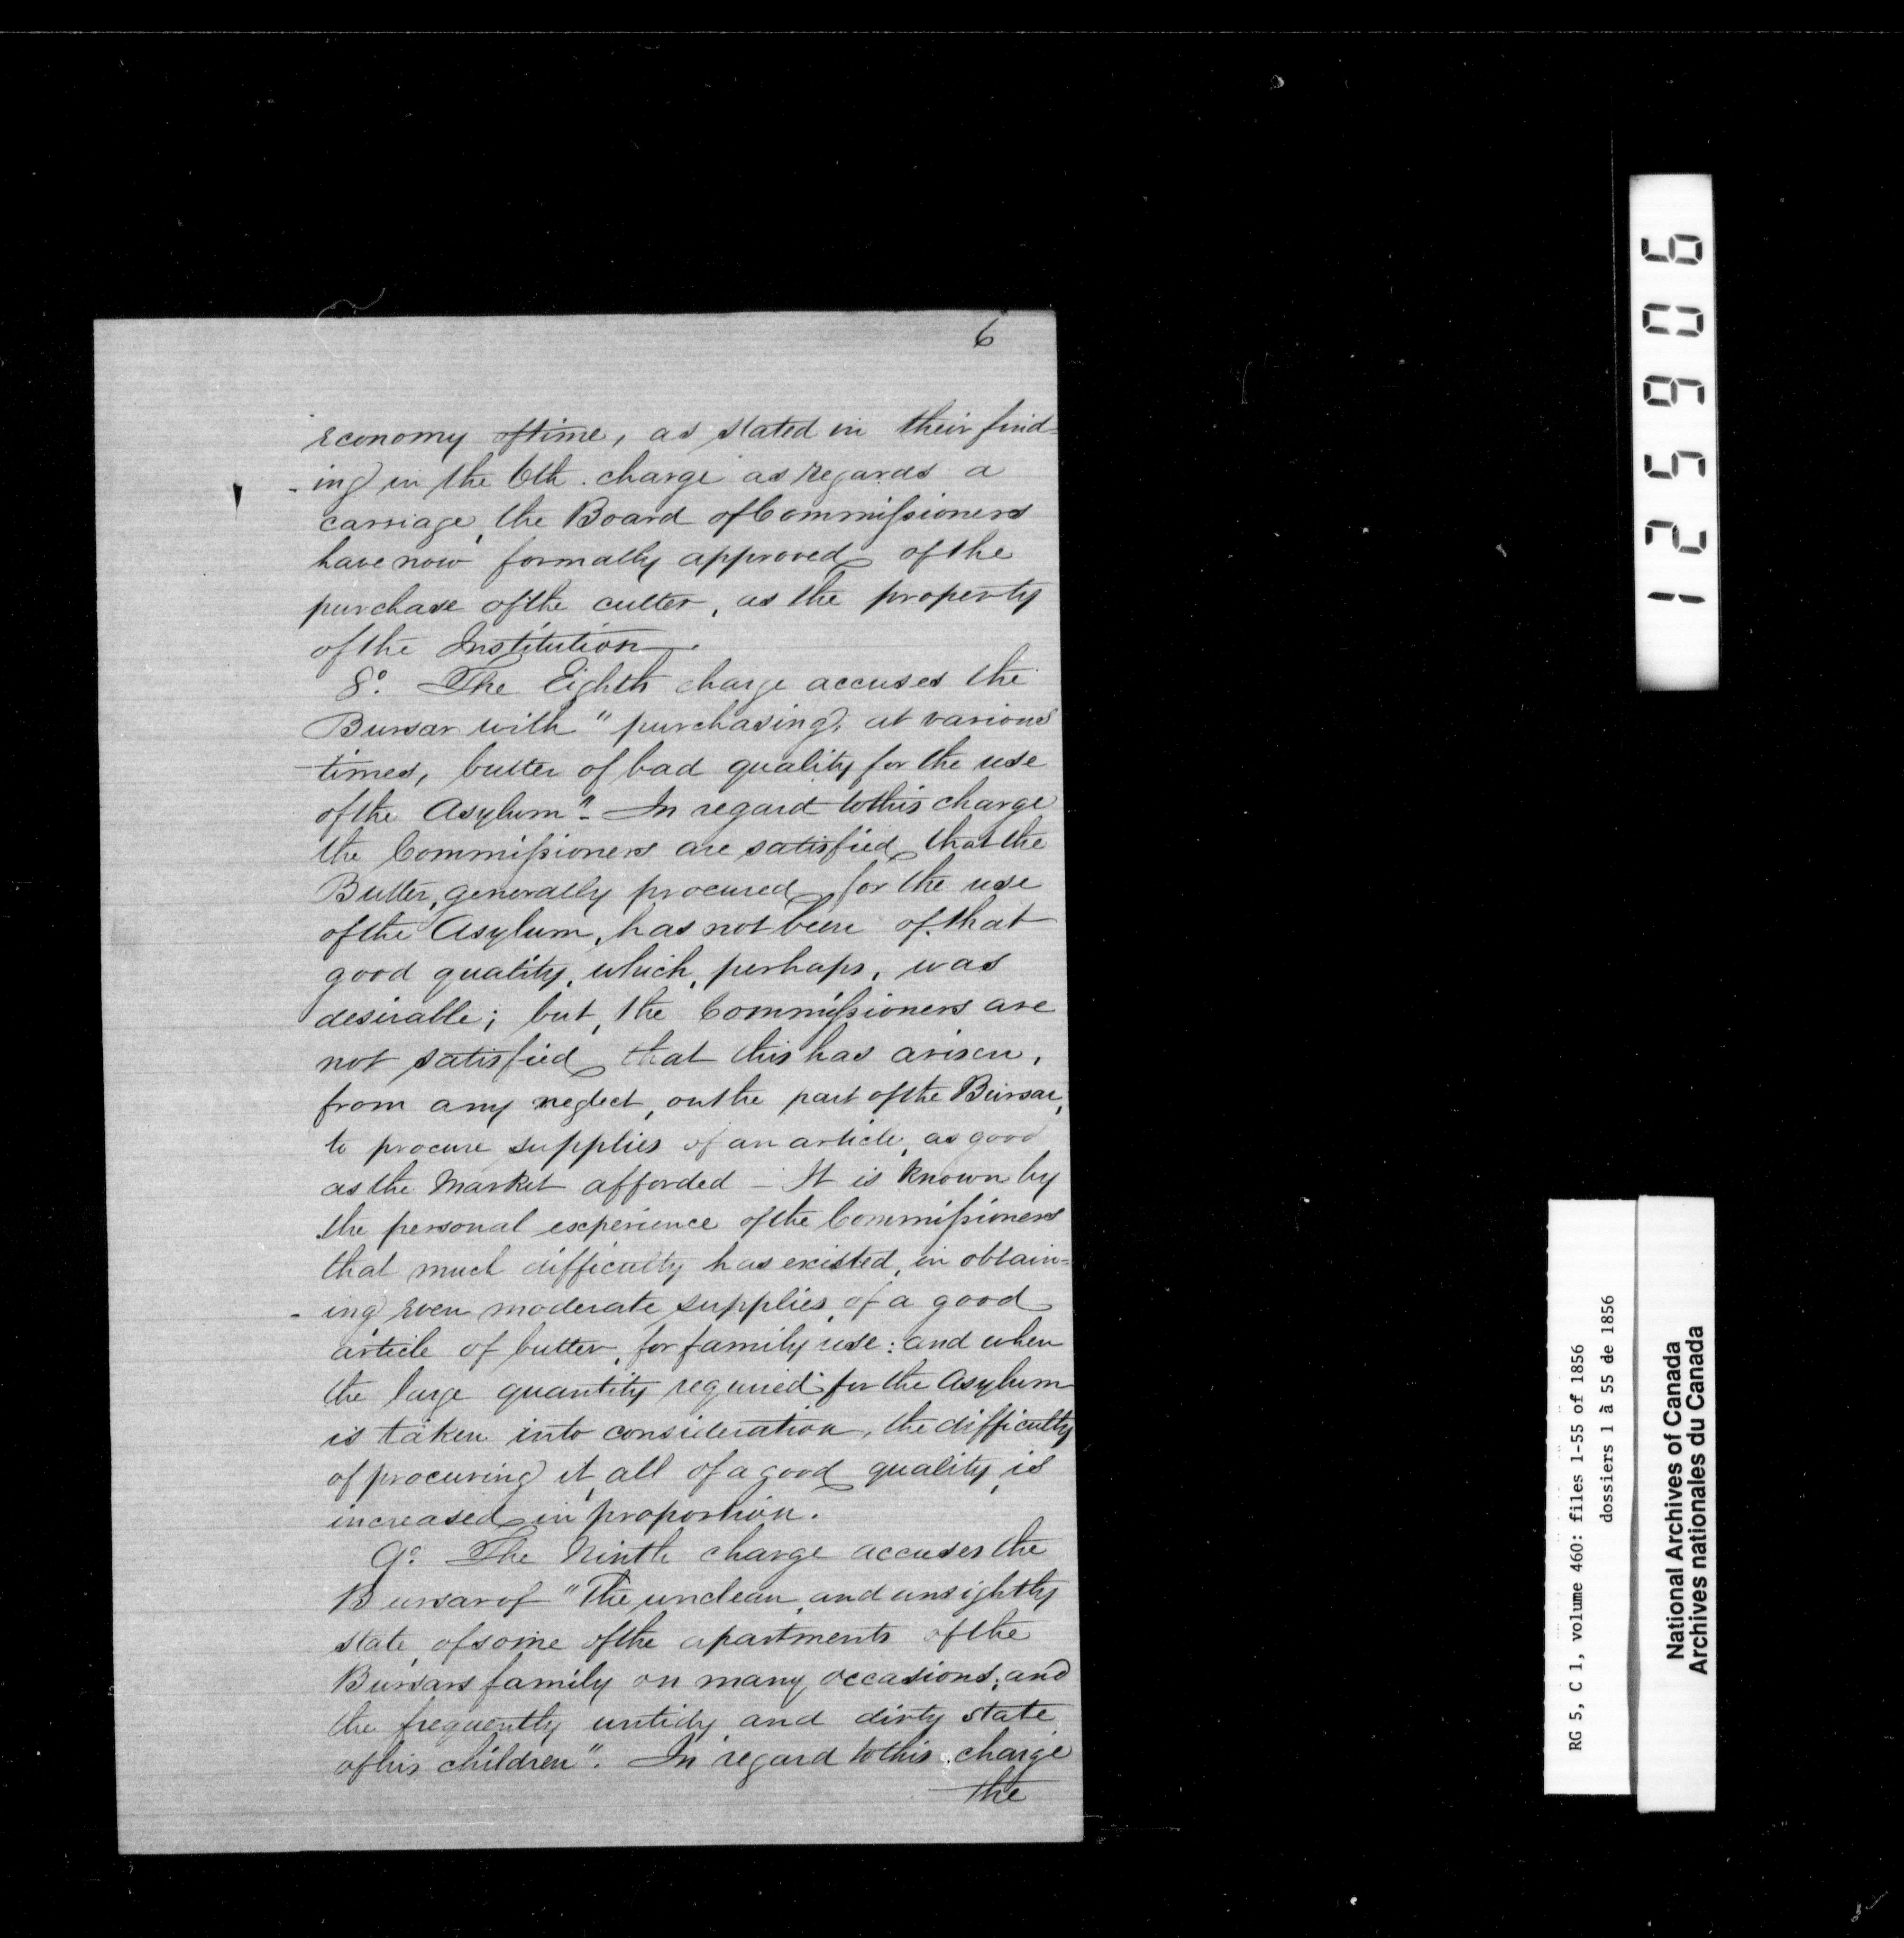 6
Economy of time, as stated in their find-
-ing in the 6th. charge as regards a
carriage, the Board of Commissioners
have now formally approved of the
purchase of the cutter, as the property
of the Institution.
8o. The Eighth charge accuses the
Bursar with "purchasing, at various
times, butter of bad quality for the use
of the Asylum" - In regard to this charge
the Commissioners are satisfied that the
Butter, generally procured for the use
of the Asylum, has not been of that
good quality, which, perhaps, was
desirable; but, the Commissioners are
not satisfied that this has arisen,
from any neglect, on the part of the Bursar,
to procure supplies of an article, as good
as the Market afforded - It is known by
the personal experience of the Commissioners
that much difficulty has existed, in obtain=
-ing even moderate supplies, of a good
article of butter, for family use: and when
the large quantity required for the Asylum
is taken into consideration, the difficulty
of procuring it, all of a good quality, is
increased in proportion.
9o. The Ninth charge accuses the
Bursar of "The unclean, and unsightly
state, of some of the apartments of the
Bursars family on many occasions; and
the frequently untidy and dirty state
of his children". In regard to this charge
the
125906
RG 5, C 1, volume 460: files 1-55 of 1856
dossiers 1 à 55 de 1856
National Archives of Canada
Archives nationales du Canada